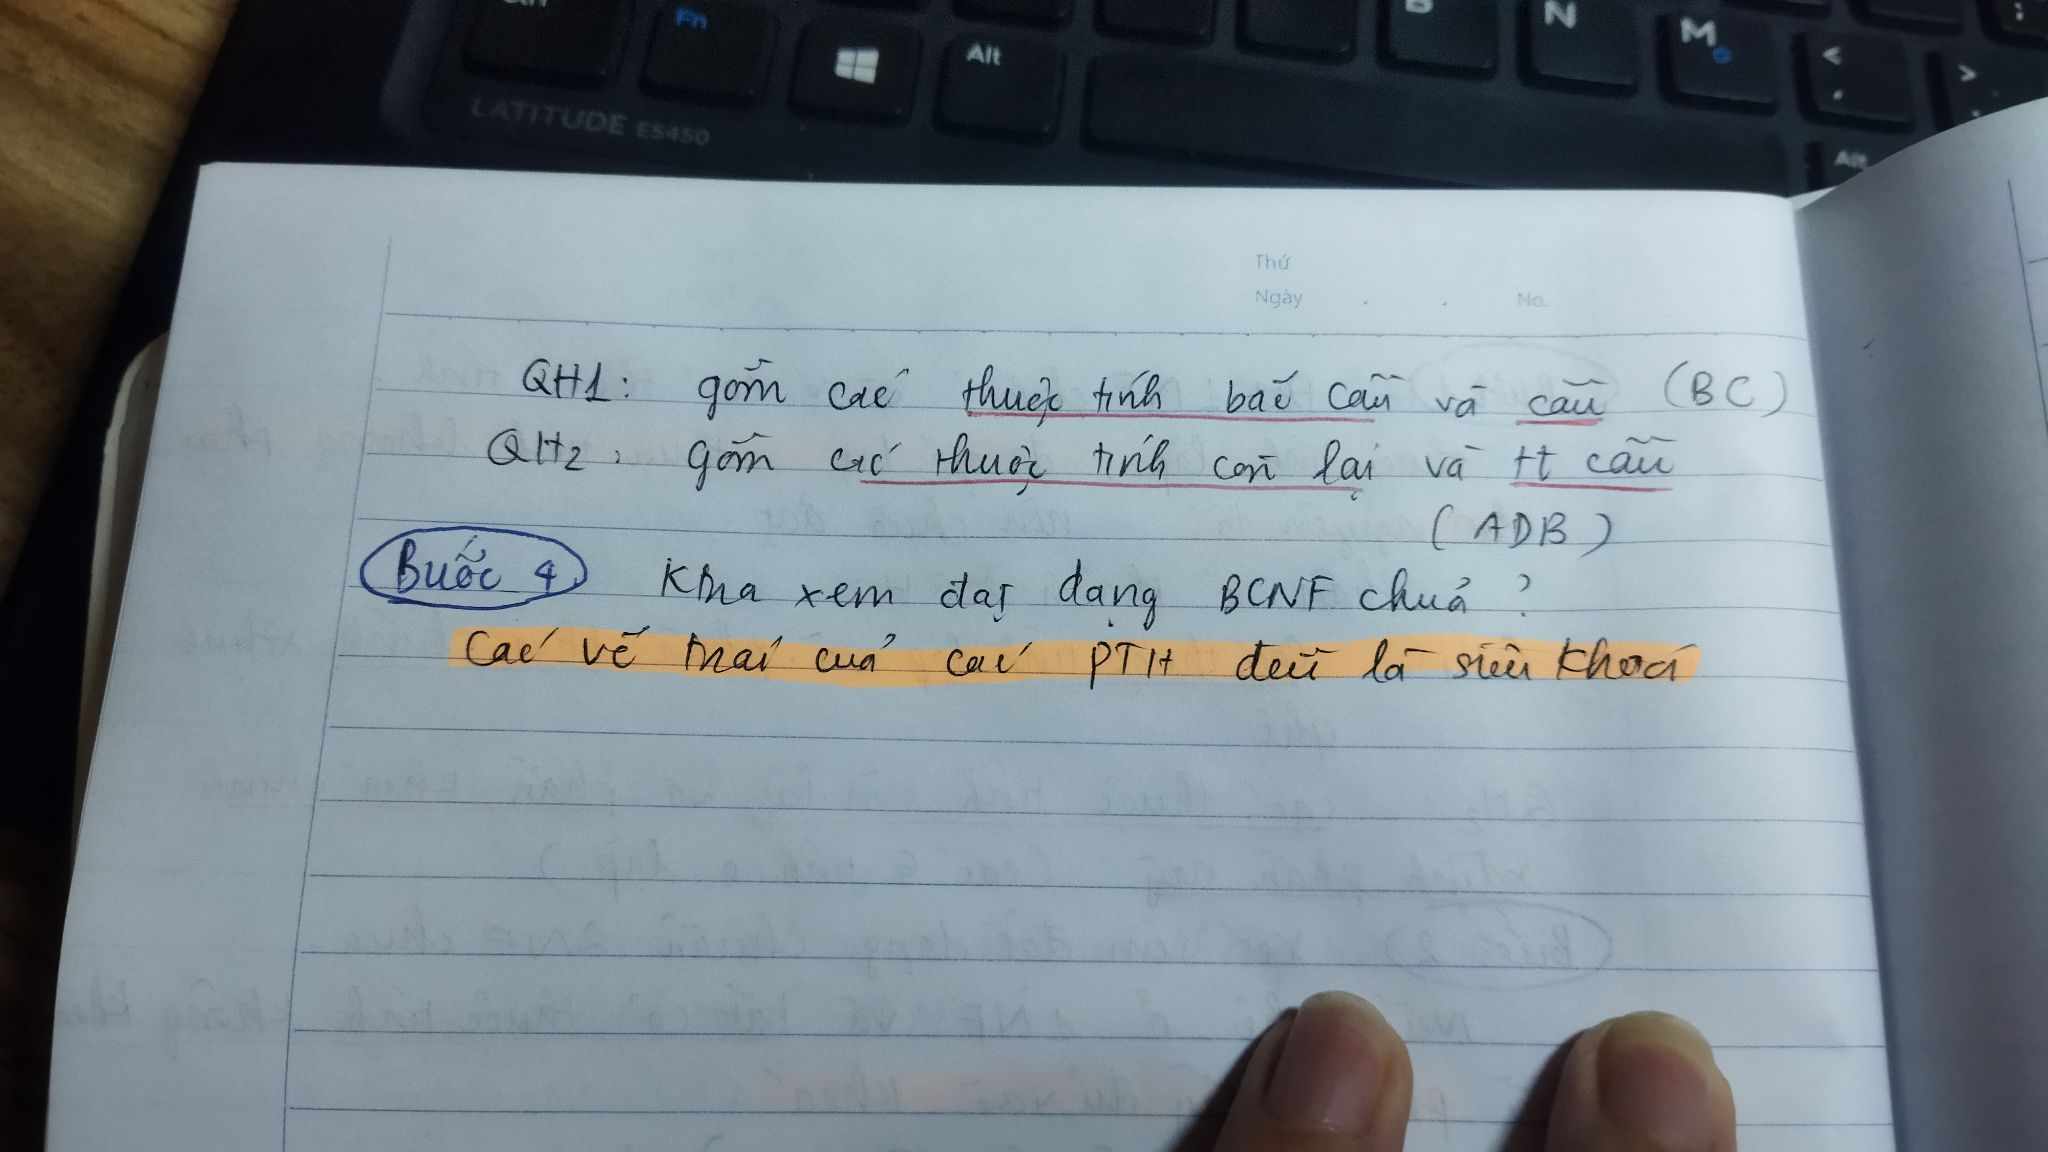 Ctrl
Fn
Alt
B
N
M
<
,
>
.
;
:
Alt
LATITUDE E5450
Thứ
Ngày . . No.
QH1: gồm các thuộc tính bắc cầu và cầu (BC)
QH2: gồm các thuộc tính còn lại và tt cầu
(ADB)
Bước 4 Ktra xem đạt dạng BCNF chưa?
Các vế trái của các PTH đều là siêu khoá